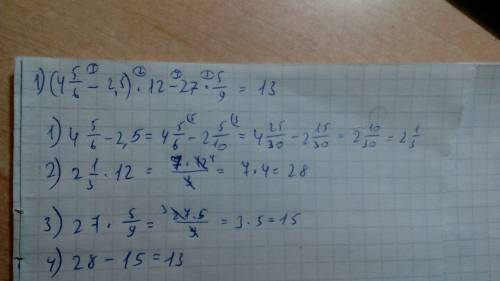 1) (4 5/6 - 2,5) · 12 - 27 · 5/9 = 13
1) 4 5/6 - 2,5 = 4 5/6 - 2 5/10 = 4 25/30 - 2 15/30 = 2 10/30 = 2 1/3
2) 2 1/3 · 12 = 7 · 12/3 = 7 · 4 = 28
3) 27 · 5/9 = 27 · 5/9 = 3 · 5 = 15
4) 28 - 15 = 13